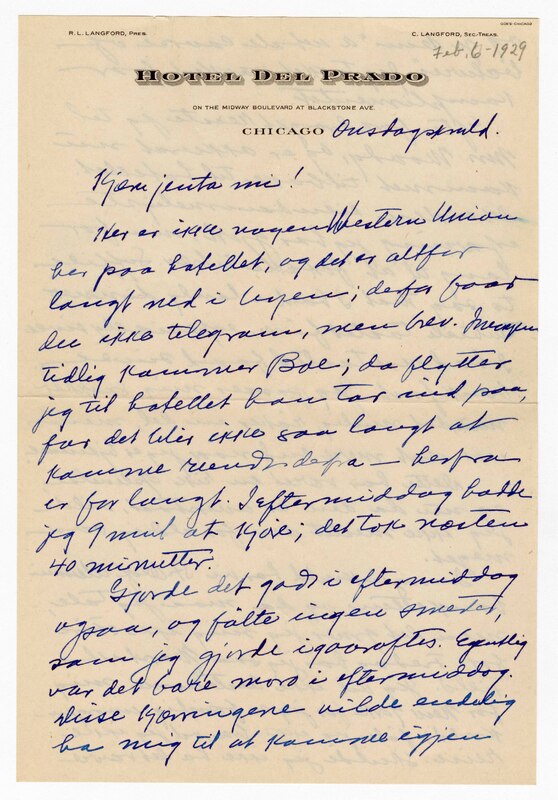 GOE'S-CHICAGO
R. L. LANGFORD, PRES.
C. LANGFORD, SEC-TREAS.
Feb. 6 - 1929
HOTEL DEL PRADO
ON THE MIDWAY BOULEVARD AT BLACKSTONE AVE.
CHICAGO Onsdagskveld.
Kjære jenta mi!
Her er ikke nogen Western Union
her paa hotellet, og det er altfor
langt ned i byen; derfor faar
du ikke telegram, men brev. Imorgen
tidlig kommer Boe; da flytter
jeg til hotellet han tar ind paa,
for det blir ikke saa langt at
komme rundt derfra — herfra
er for langt. I eftermiddag hadde
jeg 9 mil at kjøre; det tok næsten
40 minutter.
Gjorde det godt i eftermiddag
ogsaa, og følte ingen smerter,
som jeg gjorde igaaraftes. Egentlig
var det bare moro i eftermiddag.
Disse kjærringene vilde endelig
ha mig til at komme igjen